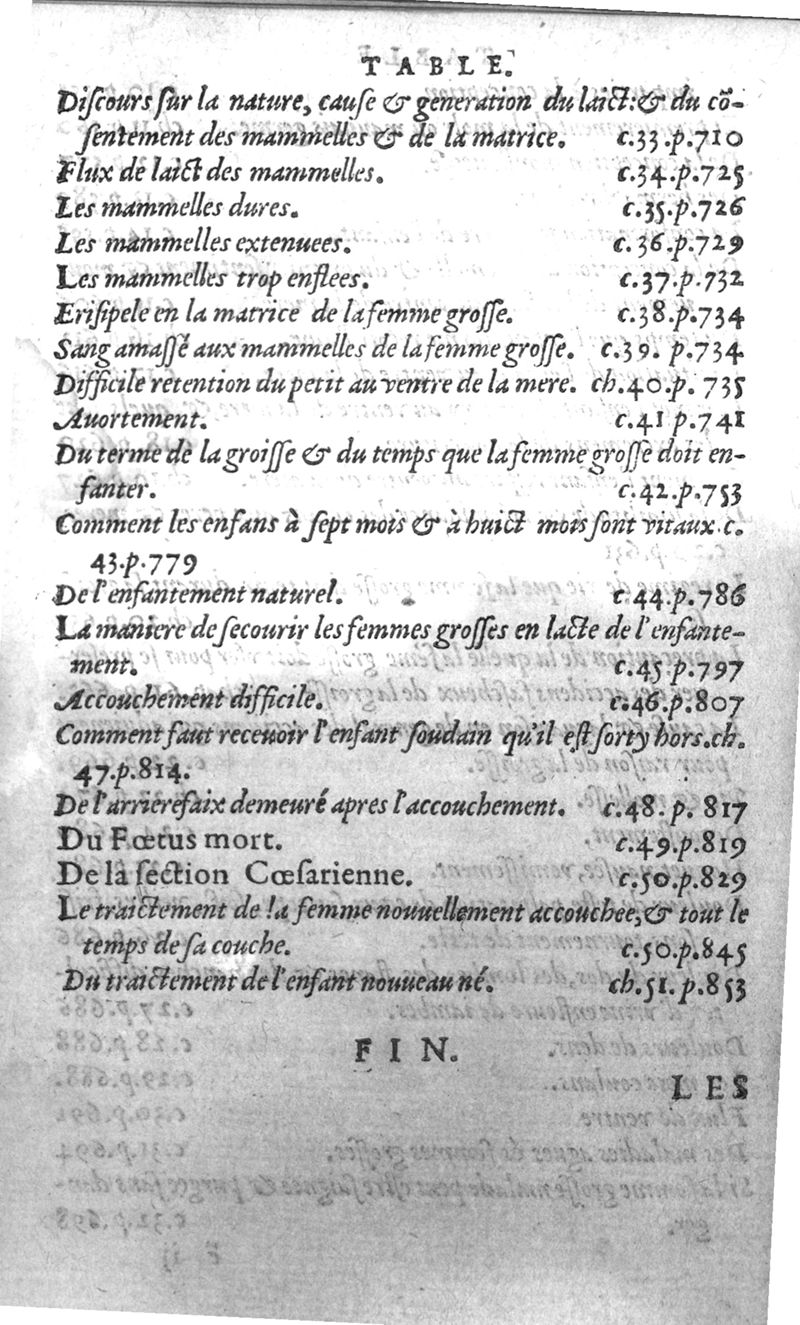 TABLE.
Discours sur la nature, cause & generation du laict: & du cō-
sentement des mammelles & de la matrice. c.33.p.710
Flux de laict des mammelles. c.34.p.725
Les mammelles dures. c.35.p.726
Les mammelles extenuees. c.36.p.729
Les mammelles trop enflees. c.37.p.732
Erisipele en la matrice de la femme grosse. c.38.p.734
Sang amassé aux mammelles de la femme grosse. c.39. p.734
Difficile retention du petit au ventre de la mere. ch.40.p. 735
Auortement. c.41 p.741
Du terme de la groisse & du temps que la femme grosse doit en-
fanter. c.42.p.753
Comment les enfans à sept mois & à huict mois sont vitaux.c.
43.p.779
De l'enfantement naturel. c 44.p.786
La maniere de secourir les femmes grosses en lacte de l'enfante-
ment. c.45 p.797
Accouchement difficile. c.46.p.807
Comment faut receuoir l'enfant soudain qu'il est sorty hors.ch.
47.p.814.
De l'arrierefaix demeuré apres l'accouchement. c.48.p. 817
Du Fœtus mort. c.49.p.819
De la section Cœsarienne. c.50.p.829
Le traictement de la femme nouuellement accouchee, & tout le
temps de sa couche. c.50.p.845
Du traictement de l'enfant nouueau né. ch.51.p.853
FIN.
LES